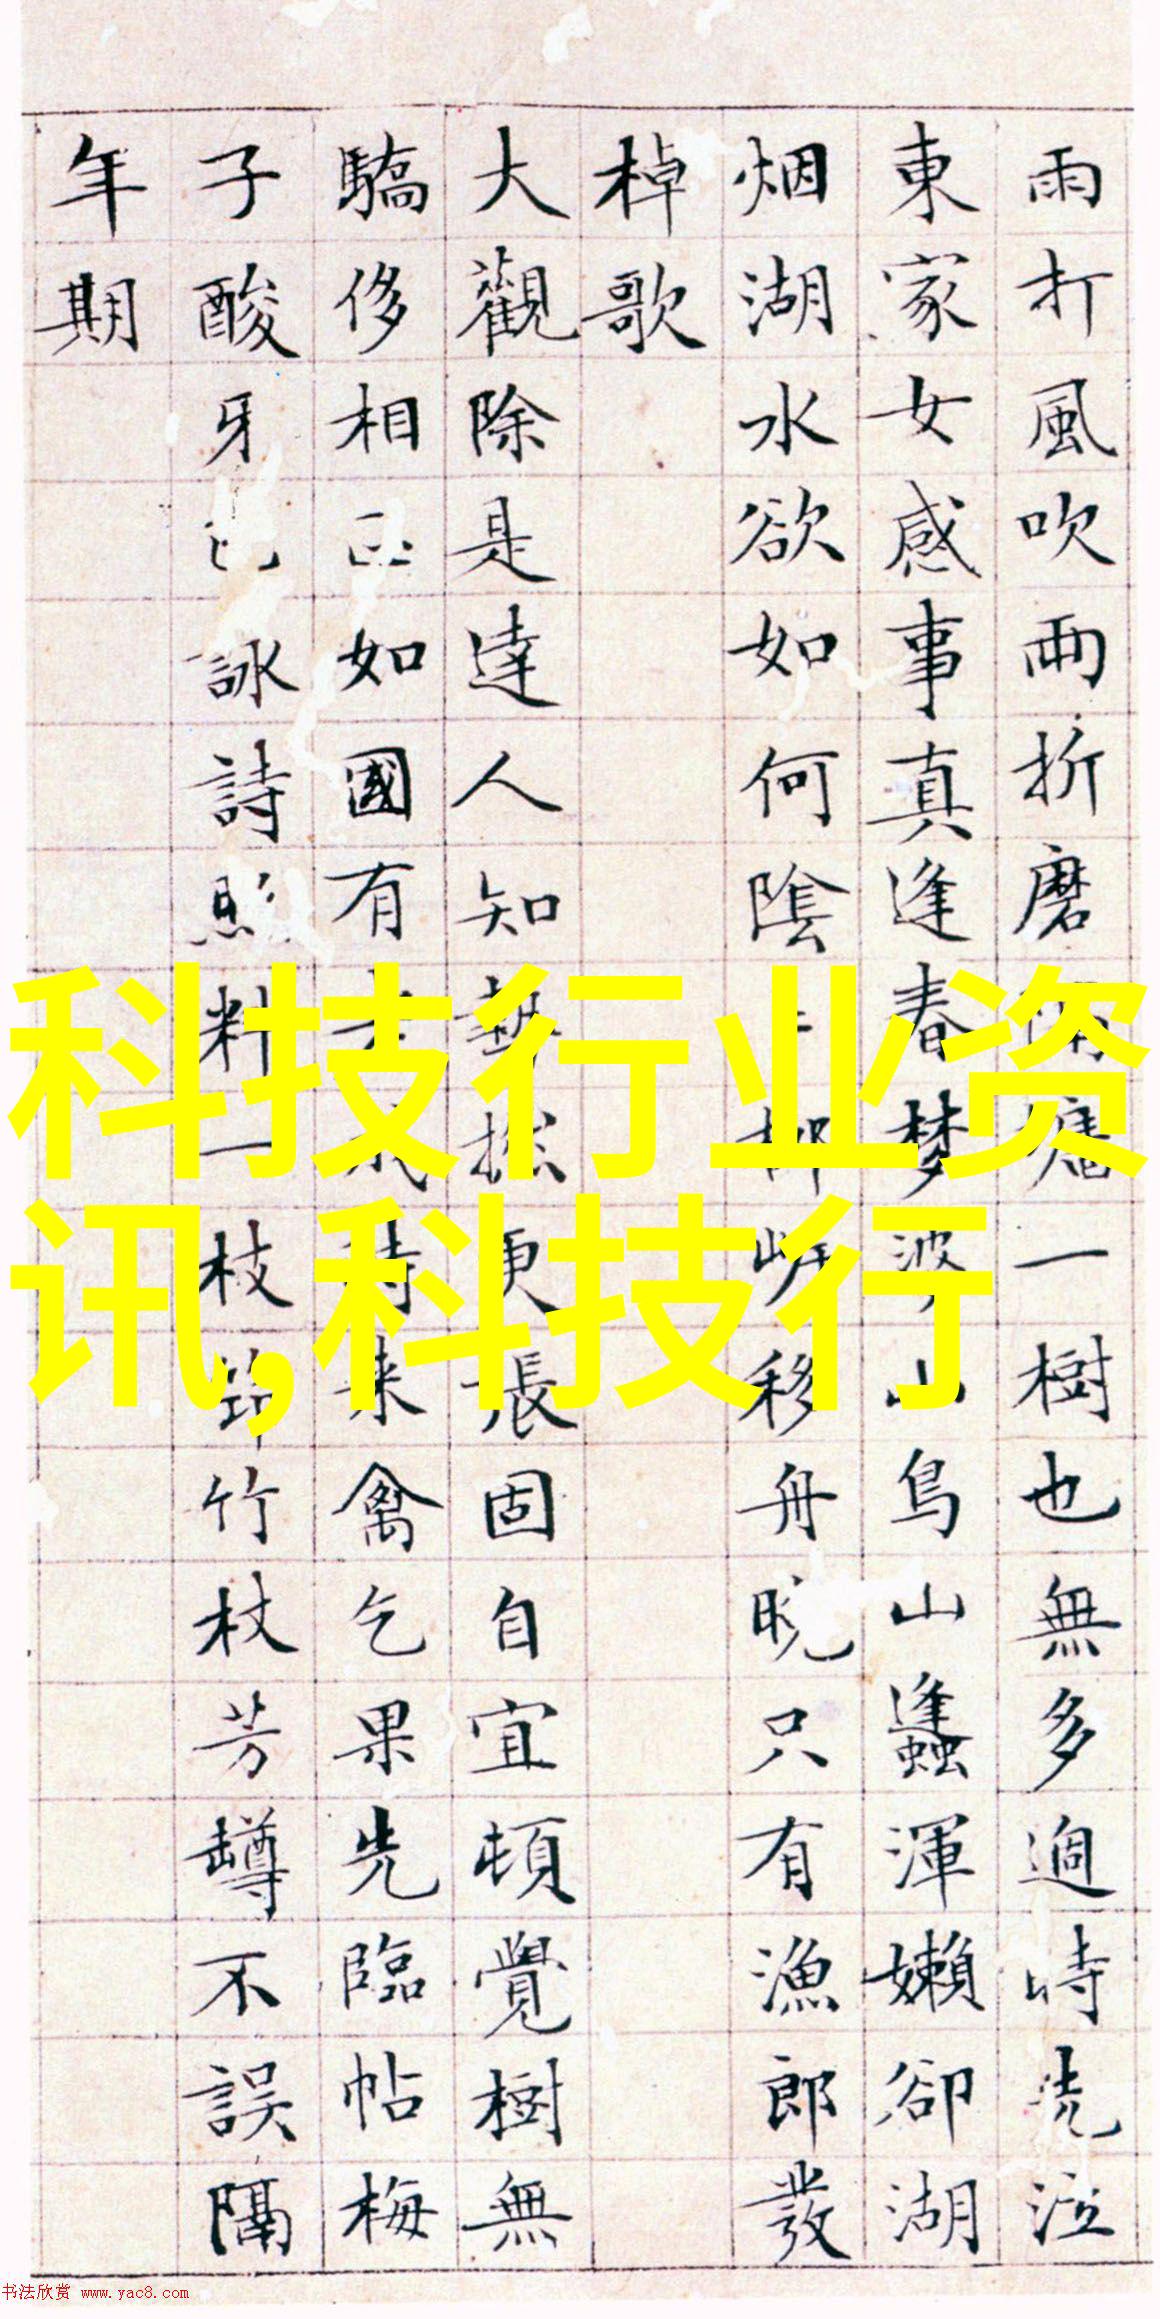 雨打風吹雨折磨一樹也無多過時洗泣
東家女感事真逢春夢婆山鳥山蠭渾嬾卻湖
烟湖水欲如何陰柳岍移舟晚只有漁郎發
棹歌
大觀除是達人知藝摇更張固自宜頓覺樹無
驕侈相如國有詩来禽乞果先臨帖梅
子酸牙詠詩照料一枝筇竹杖芳罇不誤隔
年期
科技行业资
讯,科技行
书法欣赏 www.yac8.com